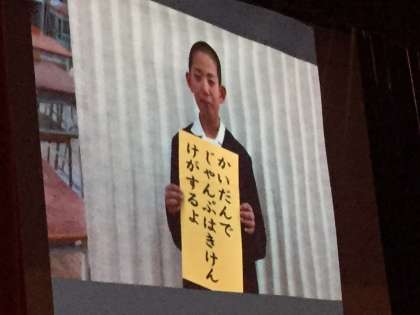 かいだんで
じゃんぷはきけん
けがするよ